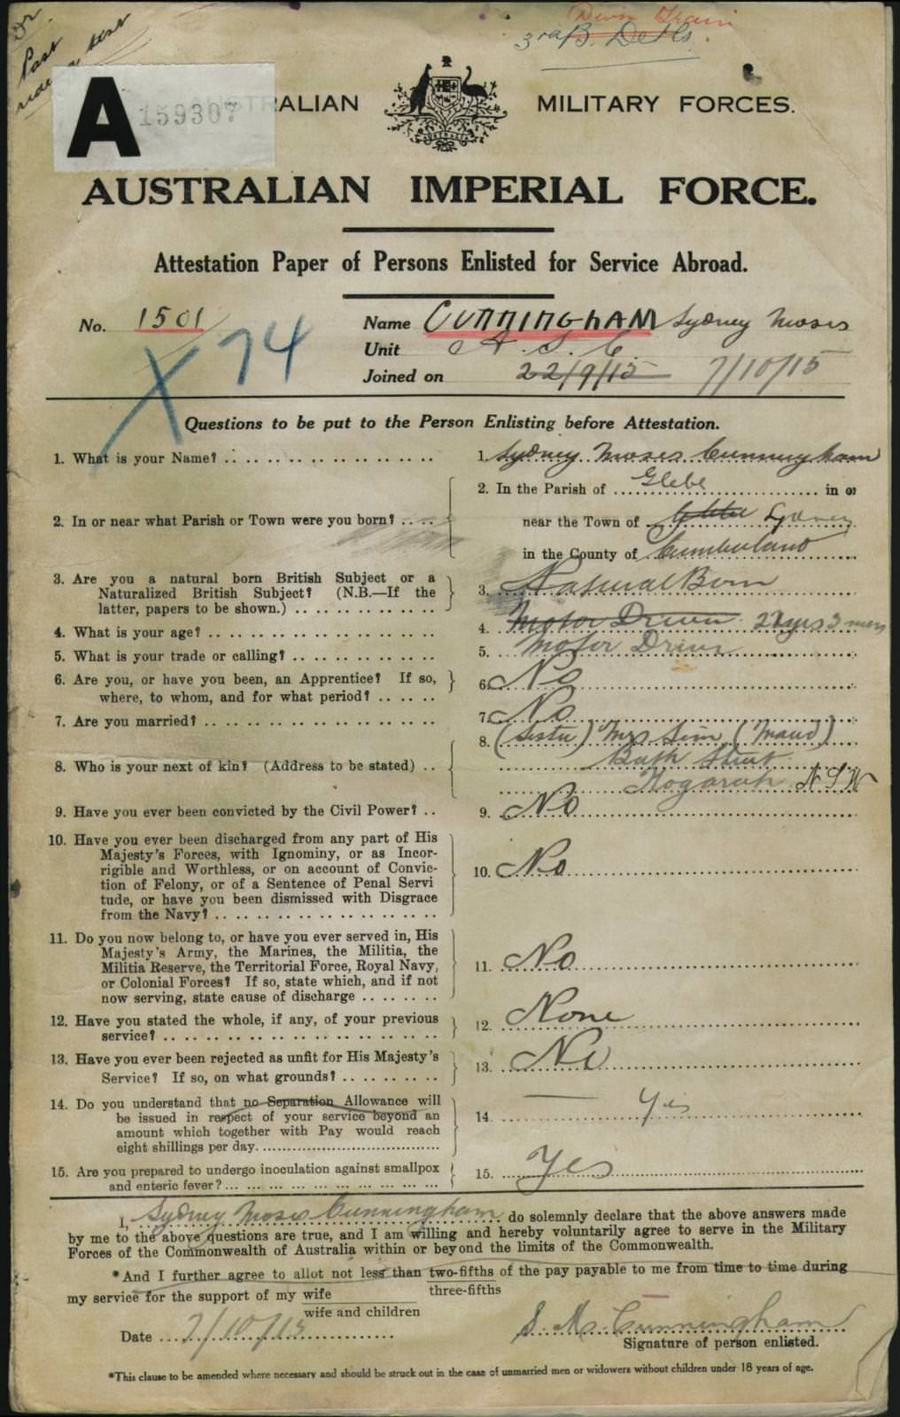 Dr
Past
riding test
Down Train
3rd B. Detls.
A 159307 RALIAN MILITARY FORCES.
AUSTRALIAN IMPERIAL FORCE.
Attestation Paper of Persons Enlisted for Service Abroad.
No. 1501 Name CUNNINGHAM Sydney Moses
X 74
Unit A. S. C.
Joined on 22/9/15 7/10/15
Questions to be put to the Person Enlisting before Attestation.
1. What is your Name? 1. Sydney Moses Cunningham
2. In or near what Parish or Town were you born? 2. In the Parish of Glebe in or
near the Town of Glebe Sydney
in the County of Cumberland
3. Are you a natural born British Subject or a
Naturalized British Subject? (N.B.—If the
latter, papers to be shown.) 3. Natural Born
4. What is your age? 4. Motor Driver
5. What is your trade or calling? 5. Motor Driver
6. Are you, or have you been, an Apprentice? If so,
where, to whom, and for what period? 6. No
7. Are you married? 7. No
8. Who is your next of kin? (Address to be stated) 8. (Sister) Mrs Sim (Maud)
Bath Street
Kogarah N S W
9. Have you ever been convicted by the Civil Power? 9. No
10. Have you ever been discharged from any part of His
Majesty's Forces, with Ignominy, or as Incor-
rigible and Worthless, or on account of Convic-
tion of Felony, or of a Sentence of Penal Servi
tude, or have you been dismissed with Disgrace
from the Navy? 10. No
11. Do you now belong to, or have you ever served in, His
Majesty's Army, the Marines, the Militia, the
Militia Reserve, the Territorial Force, Royal Navy,
or Colonial Forces? If so, state which, and if not
now serving, state cause of discharge 11. No
12. Have you stated the whole, if any, of your previous
service? 12. None
13. Have you ever been rejected as unfit for His Majesty's
Service? If so, on what grounds? 13. No
14. Do you understand that no Separation Allowance will
be issued in respect of your service beyond an
amount which together with Pay would reach
eight shillings per day. 14. — Yes
15. Are you prepared to undergo inoculation against smallpox
and enteric fever? 15. Yes
I, Sydney Moses Cunningham do solemnly declare that the above answers made
by me to the above questions are true, and I am willing and hereby voluntarily agree to serve in the Military
Forces of the Commonwealth of Australia within or beyond the limits of the Commonwealth.
*And I further agree to allot not less than two-fifths of the pay payable to me from time to time during
three-fifths
my service for the support of my wife
wife and children
Date 7/10/15 S. M. Cunningham
Signature of person enlisted.
*This clause to be amended where necessary and should be struck out in the case of unmarried men or widowers without children under 18 years of age.